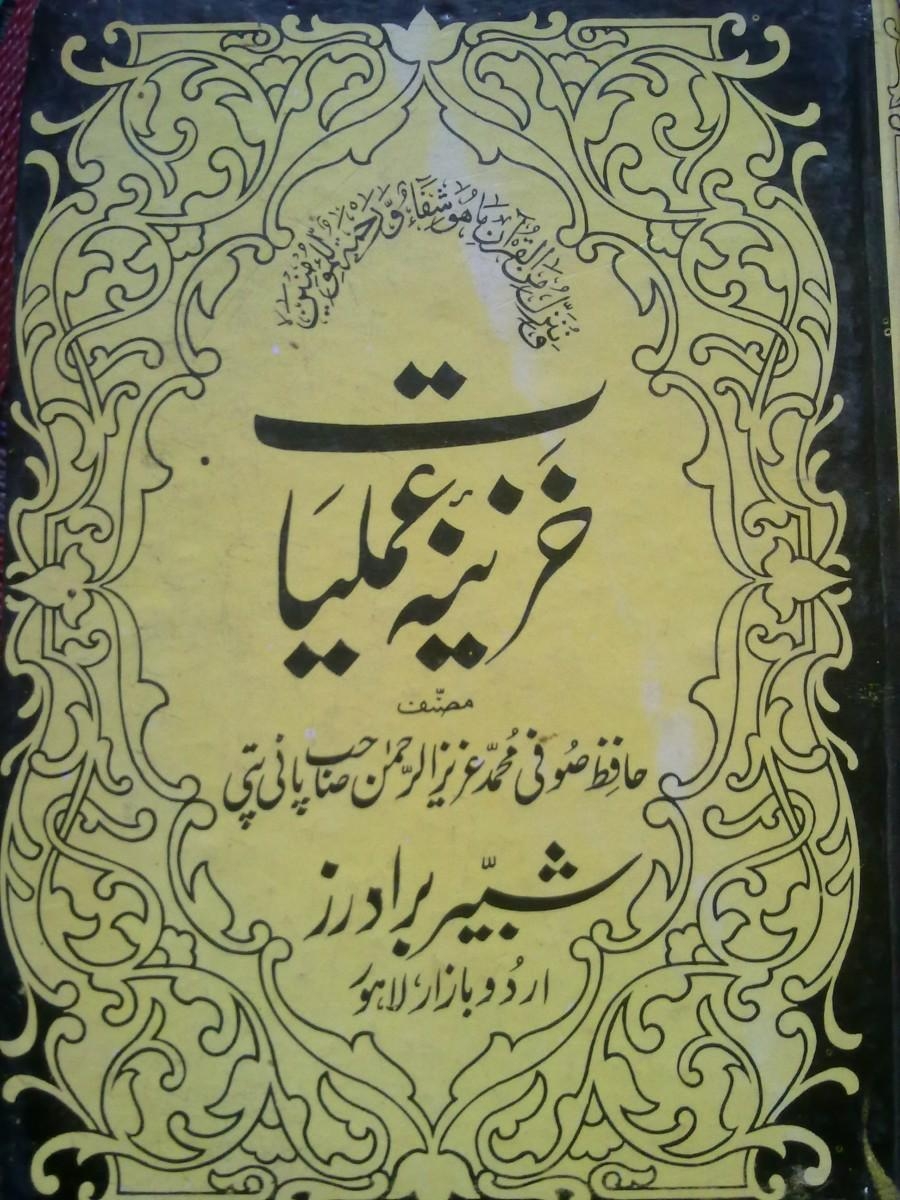 وَنُنَزِّلُ مِنَ الْقُرْآنِ مَا هُوَ شِفَآءٌ وَّرَحْمَةٌ لِّلْمُؤْمِنِيْنَ
خزینۂ عملیات
مصنّف
حافِظ صُوفی مُحمّد عزیز الرّحمٰن صاحب پانی پتی
شبّیر برادرز
اردُو بازار، لاہور